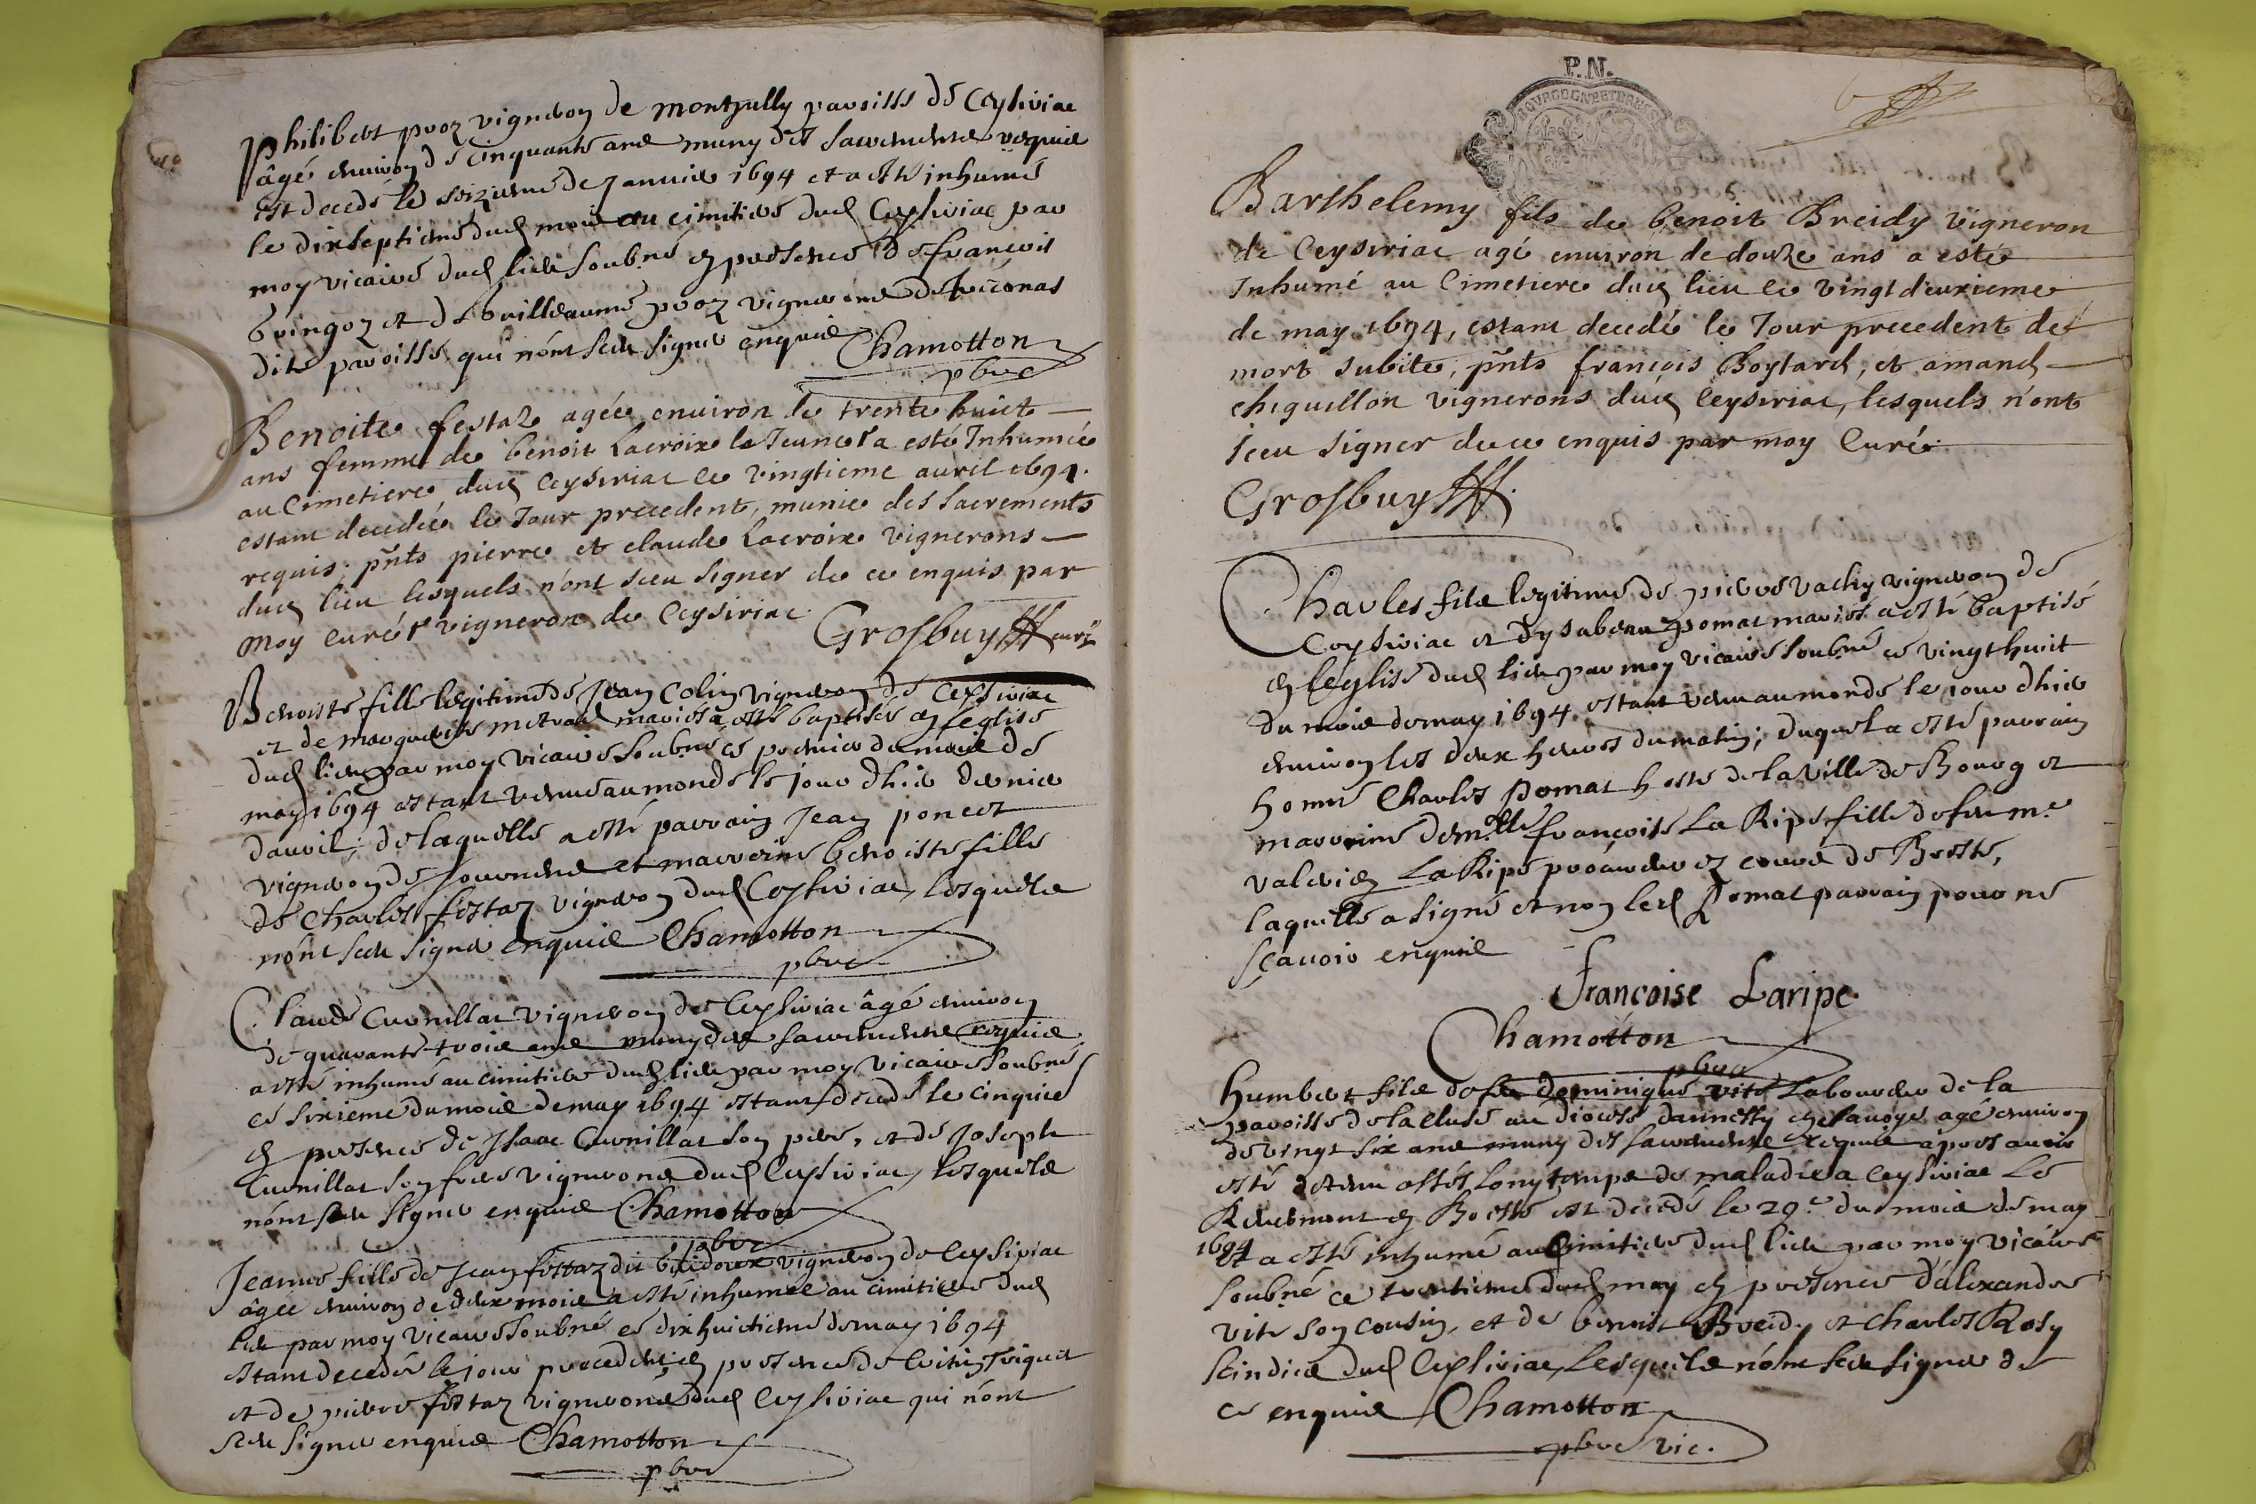 Philibert proz vigneron de montjully parroisse de Ceysiriac
âgé environ de cinquante ans muny des sacremens requis
est decedé le seizieme de Januier 1694 et a esté inhumé
le dixseptieme dud mois au cimitiere dud Ceysiriac par
moy vicaire dud lieu soubné en presence de francois
bringoz et de Guilleaume proz vignerons de
dite parroisse qui nónt sceu signer enquis Chamotton
pbre
Benoite festaz agée enuiron de trente huict
ans femme de benoit Lacroix le Jeune a esté Inhumée
au Cimetiere dud Ceysiriac ce vingtieme auril 1694.
estant decedée le Jour precedent, munie des sacrements
requis. pñts pierre et claude Lacroix vignerons
dud lieu lesquels n'ont sceu signer de ce enquis par
moy curé vigneron de Ceysiriac.
Grosbuy curé
Benoiste fille legitime de Jean Colin vigneron de Ceysiriac
et de marguerite mariés a esté baptisée en l'eglise
dud lieu par moy vicaire soubné ce premier du mois de
may 1694 estant venue au monde le jour dhier dernier
dauril; de laquelle a esté parrain Jean poncet
vigneron de Journens et marreine benoiste fille
de Charles festaz vigneron dud Ceysiriac, lesquels
nónt sceu signer enquis Chamotton
pbre
Claude Curnillat vigneron de Ceysiriac âgé enuiron
de quarante trois ans muny des sacremens requis
a esté inhumé au cimitiere dud lieu par moy vicaire soubné
ce sixieme du mois de may 1694 estant decedé le cinquie
en presence de Isaac Curnillat son pere, et de Joseph
Curnillat son frere vignerons dud Ceysiriac, lesquels
nónt sceu signer enquis Chamotton
pbre
Jeanne fille de Jean festaz dit vigneron de Ceysiriac
âgée enuiron de deux mois a esté inhumée au cimitiere dud
lieu par moy vicaire soubné ce dixhuictieme de may 1694
estant decedée le jour precedent, en presence de
et de pierre festaz vignerons dud Ceysiriac qui nónt
sceu signer enquis Chamotton
pbre
P.N.
Barthelemy fils de benoit Breidy vigneron
de Ceysiriac agé enuiron de douze ans a esté
Inhumé au Cimetiere dud lieu ce vingt deuxieme
de may 1694, estant decedé le Jour precedent de
mort subite, pñts françois Boytard, et amand
chiquillon vignerons dud Ceysiriac, lesquels n'ont
sceu signer de ce enquis par moy Curé.
Grosbuy
Charles fils legitime de pierre vachy vigneron de
Ceysiriac et dysabeau pomat mariés a esté baptisé
en l'eglise dud lieu par moy vicaire soubné ce vingt huit
du mois de may 1694 estant venu au monde le jour dhier
enuiron les deux heures du matin; duquel a esté parrain
honnê Charles pomat hoste de la ville de Bourg et
marreine demlle françoise La Ripe fille de feu me
valerien La Ripe procureur ez cours de Bresse,
laquelle a signé et non led pomat parrain pour ne
sçauoir enquis
Francoise Laripe
Chamotton
pbre
Humbert fils de feu dominique vite Laboureur de la
parroisse de la cluse au diocese dannessy en sauoye agé enuiron
de vingt six ans muny des sacremens requis apres auoir
esté detenu assés longtemps de maladie a Ceysiriac le
Reuermont en Bresse est decedé le 29e du mois de may
1694 et a esté inhumé au cimitiere dud lieu par moy vicaire
soubné ce trentieme dud may en presence d'alexandre
vite son cousin, et de benoist Breidy et charles Rosy
scindics dud Ceysiriac, lesquels nónt sceu signer de
ce enquis Chamotton
pbre vic.